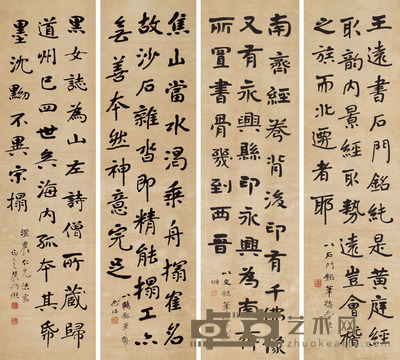 王遠書石門銘純是黃庭經
取韵內景經取勢遠豈會稽
之族而北遷者耶
以石門銘筆
南齊經卷背後印有千佛像
又有永興縣印永興為南齊
所置書骨發到西晉
焦山當水渴乘舟搨崔名
故沙石雜沓即精能搨工亦
無善本然神意完足
黑女誌為山左詩僧所藏歸
道州已四世矣海内孤本其帋
墨沈黝不異宋搨
仁兄法家